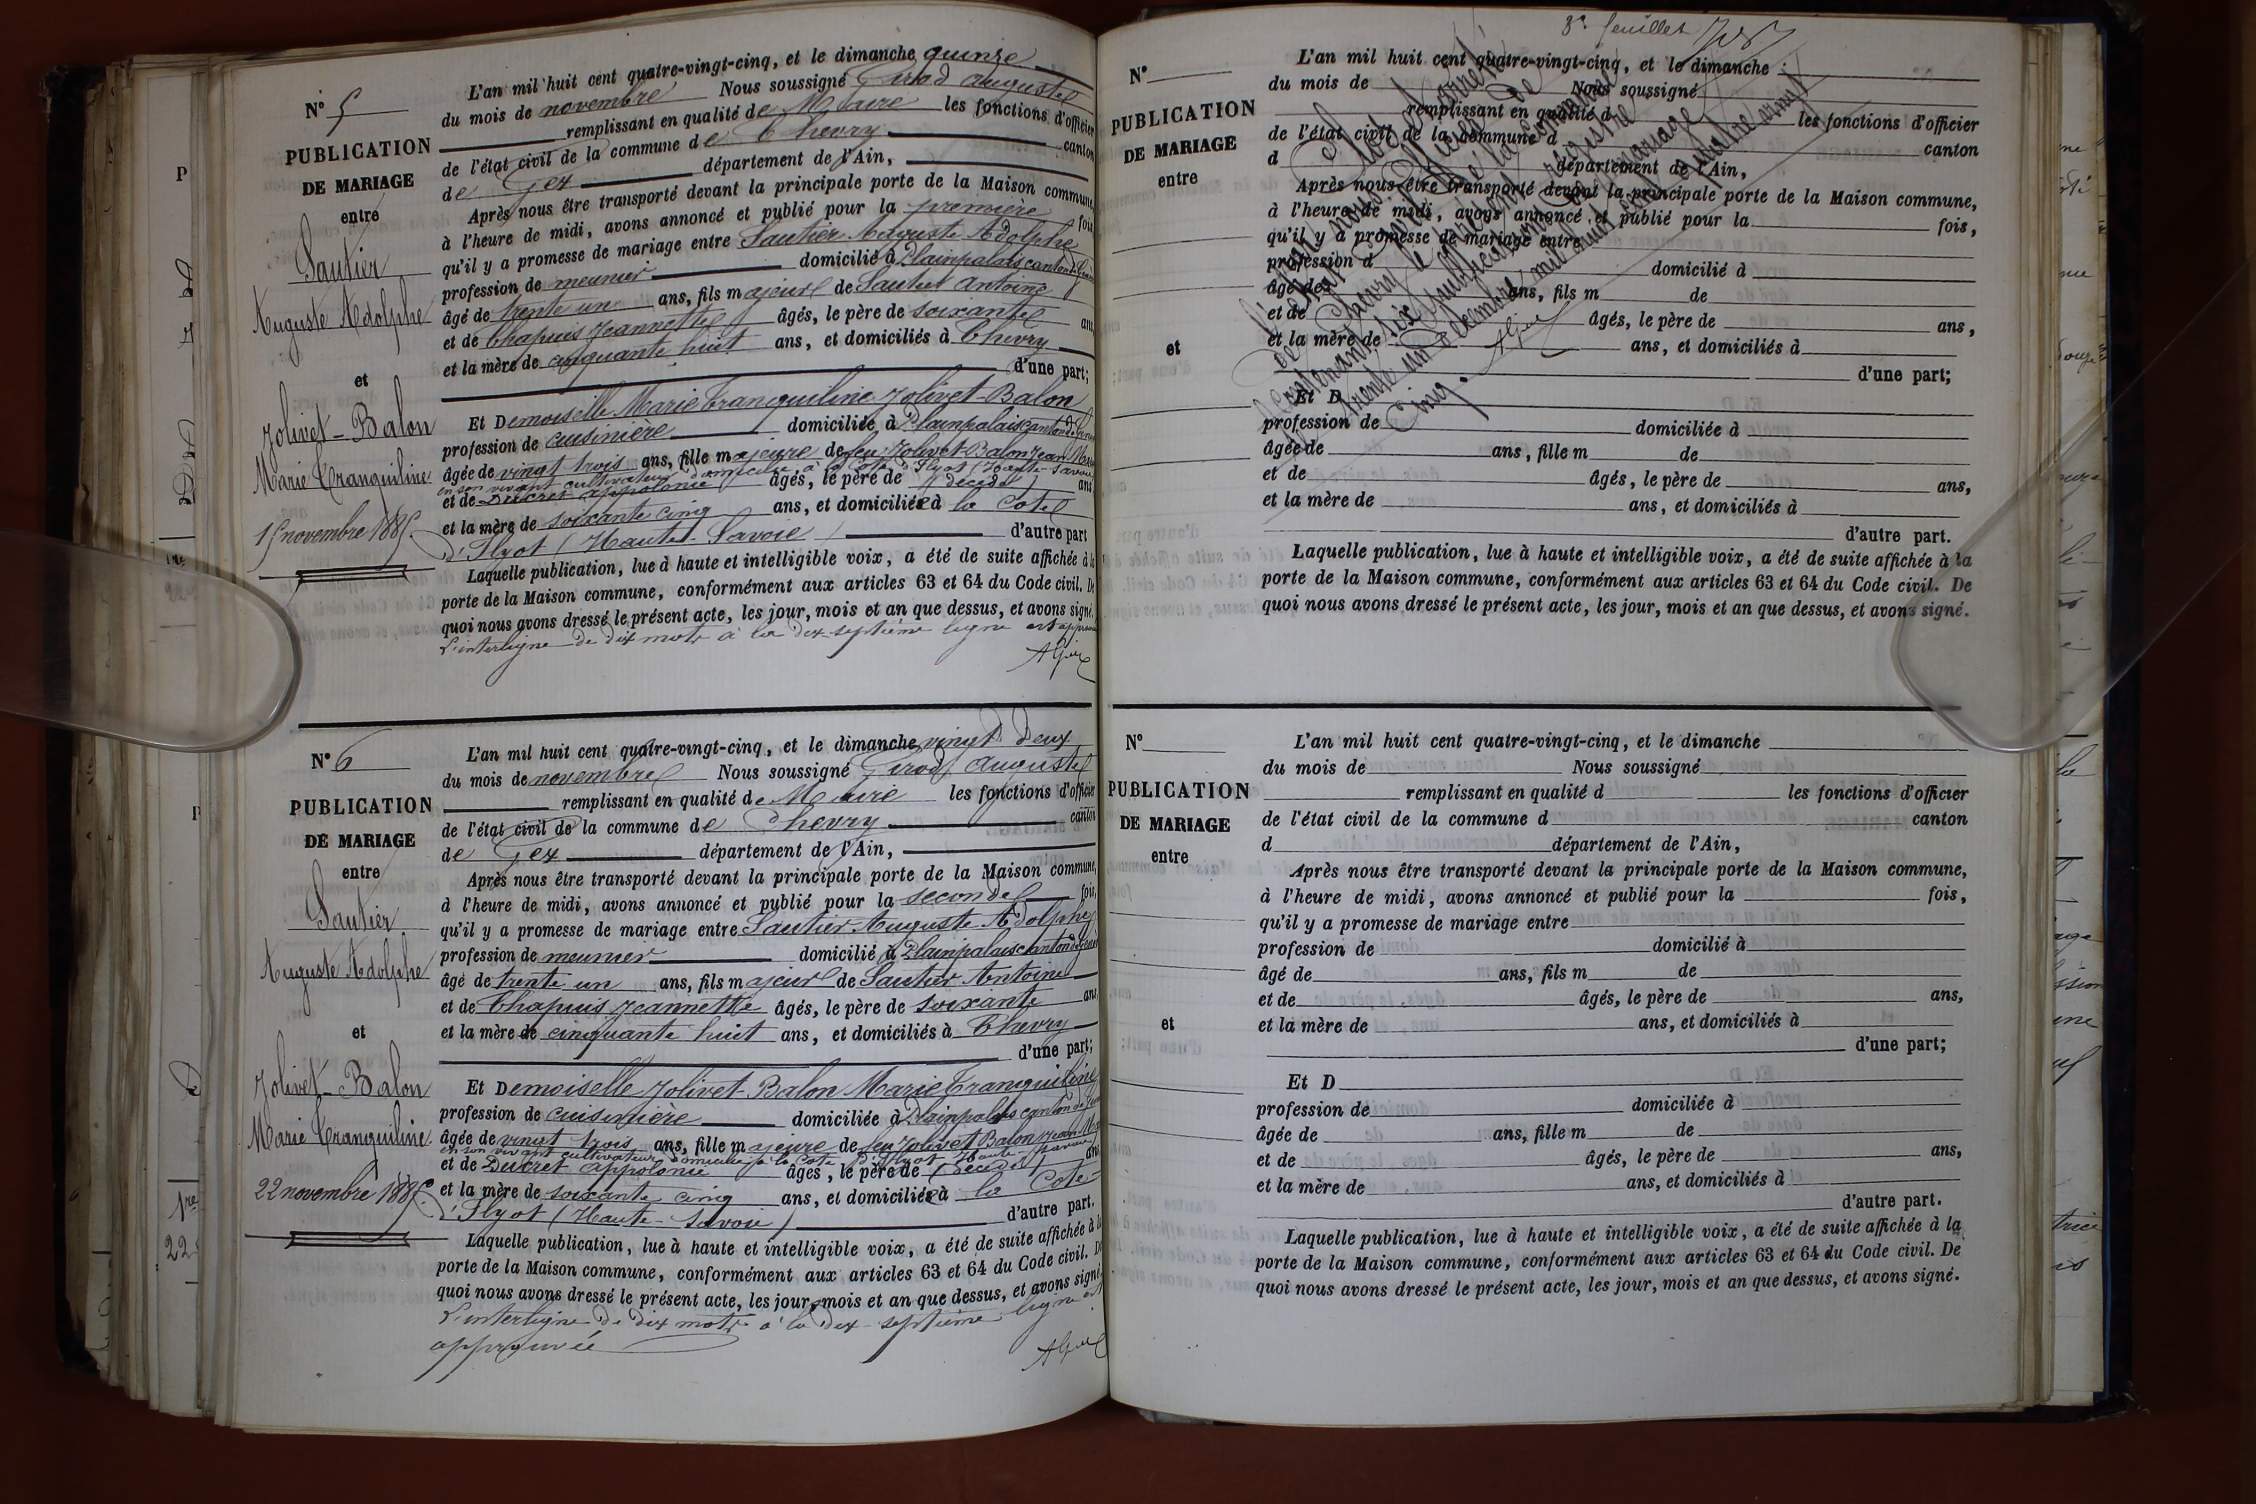 N° 5
PUBLICATION
DE MARIAGE
entre
Sautier
Auguste Adolphe
et
Jolivet-Balon
Marie Tranquiline
15 novembre 1885.
L'an mil huit cent quatre-vingt-cinq, et le dimanche quinze
du mois de novembre Nous soussigné Girod Auguste
remplissant en qualité de Maire les fonctions d'officier
de l'état civil de la commune de Chevry canton
de Gex département de l'Ain,
Après nous être transporté devant la principale porte de la Maison commune,
à l'heure de midi, avons annoncé et publié pour la première fois,
qu'il y a promesse de mariage entre Sautier Auguste Adolphe
profession de meunier domicilié à Plainpalais canton de
âgé de trente un ans, fils majeur de Sautier Antoine
et de Chapuis Jeannette âgés, le père de soixante ans,
et la mère de cinquante huit ans, et domiciliés à Chevry
d'une part;
Et Demoiselle Marie Tranquiline Jolivet-Balon
profession de cuisinière domiciliée à Plainpalais canton de
âgée de vingt trois ans, fille majeure de feu Jolivet-Balon Jean
en son vivant cultivateur domicilié à la Cote d'Hyot (Haute-Savoie
et de Ducret Appolonie âgés, le père de (décédé) ans
et la mère de soixante cinq ans, et domiciliée à la Cote
d'Hyot (Haute-Savoie) d'autre part
Laquelle publication, lue à haute et intelligible voix, a été de suite affichée à la
porte de la Maison commune, conformément aux articles 63 et 64 du Code civil. De
quoi nous avons dressé le présent acte, les jour, mois et an que dessus, et avons signé.
L'interligne de dix mots à la dix-septième ligne est approuvé
N° 6
PUBLICATION
DE MARIAGE
entre
Sautier
Auguste Adolphe
et
Jolivet-Balon
Marie Tranquiline
22 novembre 1885
L'an mil huit cent quatre-vingt-cinq, et le dimanche vingt deux
du mois de novembre Nous soussigné Girod Auguste
remplissant en qualité de Maire les fonctions d'officier
de l'état civil de la commune de Chevry canton
de Gex département de l'Ain,
Après nous être transporté devant la principale porte de la Maison commune,
à l'heure de midi, avons annoncé et publié pour la seconde fois,
qu'il y a promesse de mariage entre Sautier Auguste Adolphe
profession de meunier domicilié à Plainpalais canton de
âgé de trente un ans, fils majeur de Sautier Antoine
et de Chapuis Jeannette âgés, le père de soixante ans
et la mère de cinquante huit ans, et domiciliés à Chevry
d'une part;
Et Demoiselle Jolivet-Balon Marie Tranquiline
profession de cuisinière domiciliée à Plainpalais canton de
âgée de vingt trois ans, fille majeure de feu Jolivet Balon Jean
en son vivant cultivateur domicilié à la Cote d'Hyot Haute-Savoie
et de Ducret Appolonie âgés, le père de (décédé) ans
et la mère de soixante cinq ans, et domiciliée à la Cote
d'Hyot (Haute-Savoie) d'autre part.
Laquelle publication, lue à haute et intelligible voix, a été de suite affichée à la
porte de la Maison commune, conformément aux articles 63 et 64 du Code civil. De
quoi nous avons dressé le présent acte, les jour, mois et an que dessus, et avons signé
L'interligne de dix mots à la dix-septième ligne est
approuvée
8e feuillet
N°
PUBLICATION
DE MARIAGE
entre
et
L'an mil huit cent quatre-vingt-cinq, et le dimanche
du mois de Nous soussigné
remplissant en qualité d les fonctions d'officier
de l'état civil de la commune d canton
d département de l'Ain,
Après nous être transporté devant la principale porte de la Maison commune,
à l'heure de midi, avons annoncé et publié pour la fois,
qu'il y a promesse de mariage entre
profession d domicilié à
âgé de ans, fils m de
et de âgés, le père de ans,
et la mère de ans, et domiciliés à
d'une part;
Et D
profession de domiciliée à
âgée de ans, fille m de
et de âgés, le père de ans,
et la mère de ans, et domiciliés à
d'autre part.
Laquelle publication, lue à haute et intelligible voix, a été de suite affichée à la
porte de la Maison commune, conformément aux articles 63 et 64 du Code civil. De
quoi nous avons dressé le présent acte, les jour, mois et an que dessus, et avons signé.
Clos et arrêté
par nous Maire de
de la commune
de Chevry le présent registre
contenant six publications de mariage
trente un décembre mil huit cent quatre vingt
cinq.
N°
PUBLICATION
DE MARIAGE
entre
et
L'an mil huit cent quatre-vingt-cinq, et le dimanche
du mois de Nous soussigné
remplissant en qualité d les fonctions d'officier
de l'état civil de la commune d canton
d département de l'Ain,
Après nous être transporté devant la principale porte de la Maison commune,
à l'heure de midi, avons annoncé et publié pour la fois,
qu'il y a promesse de mariage entre
profession de domicilié à
âgé de ans, fils m de
et de âgés, le père de ans,
et la mère de ans, et domiciliés à
d'une part;
Et D
profession de domiciliée à
âgée de ans, fille m de
et de âgés, le père de ans,
et la mère de ans, et domiciliés à
d'autre part.
Laquelle publication, lue à haute et intelligible voix, a été de suite affichée à la
porte de la Maison commune, conformément aux articles 63 et 64 du Code civil. De
quoi nous avons dressé le présent acte, les jour, mois et an que dessus, et avons signé.